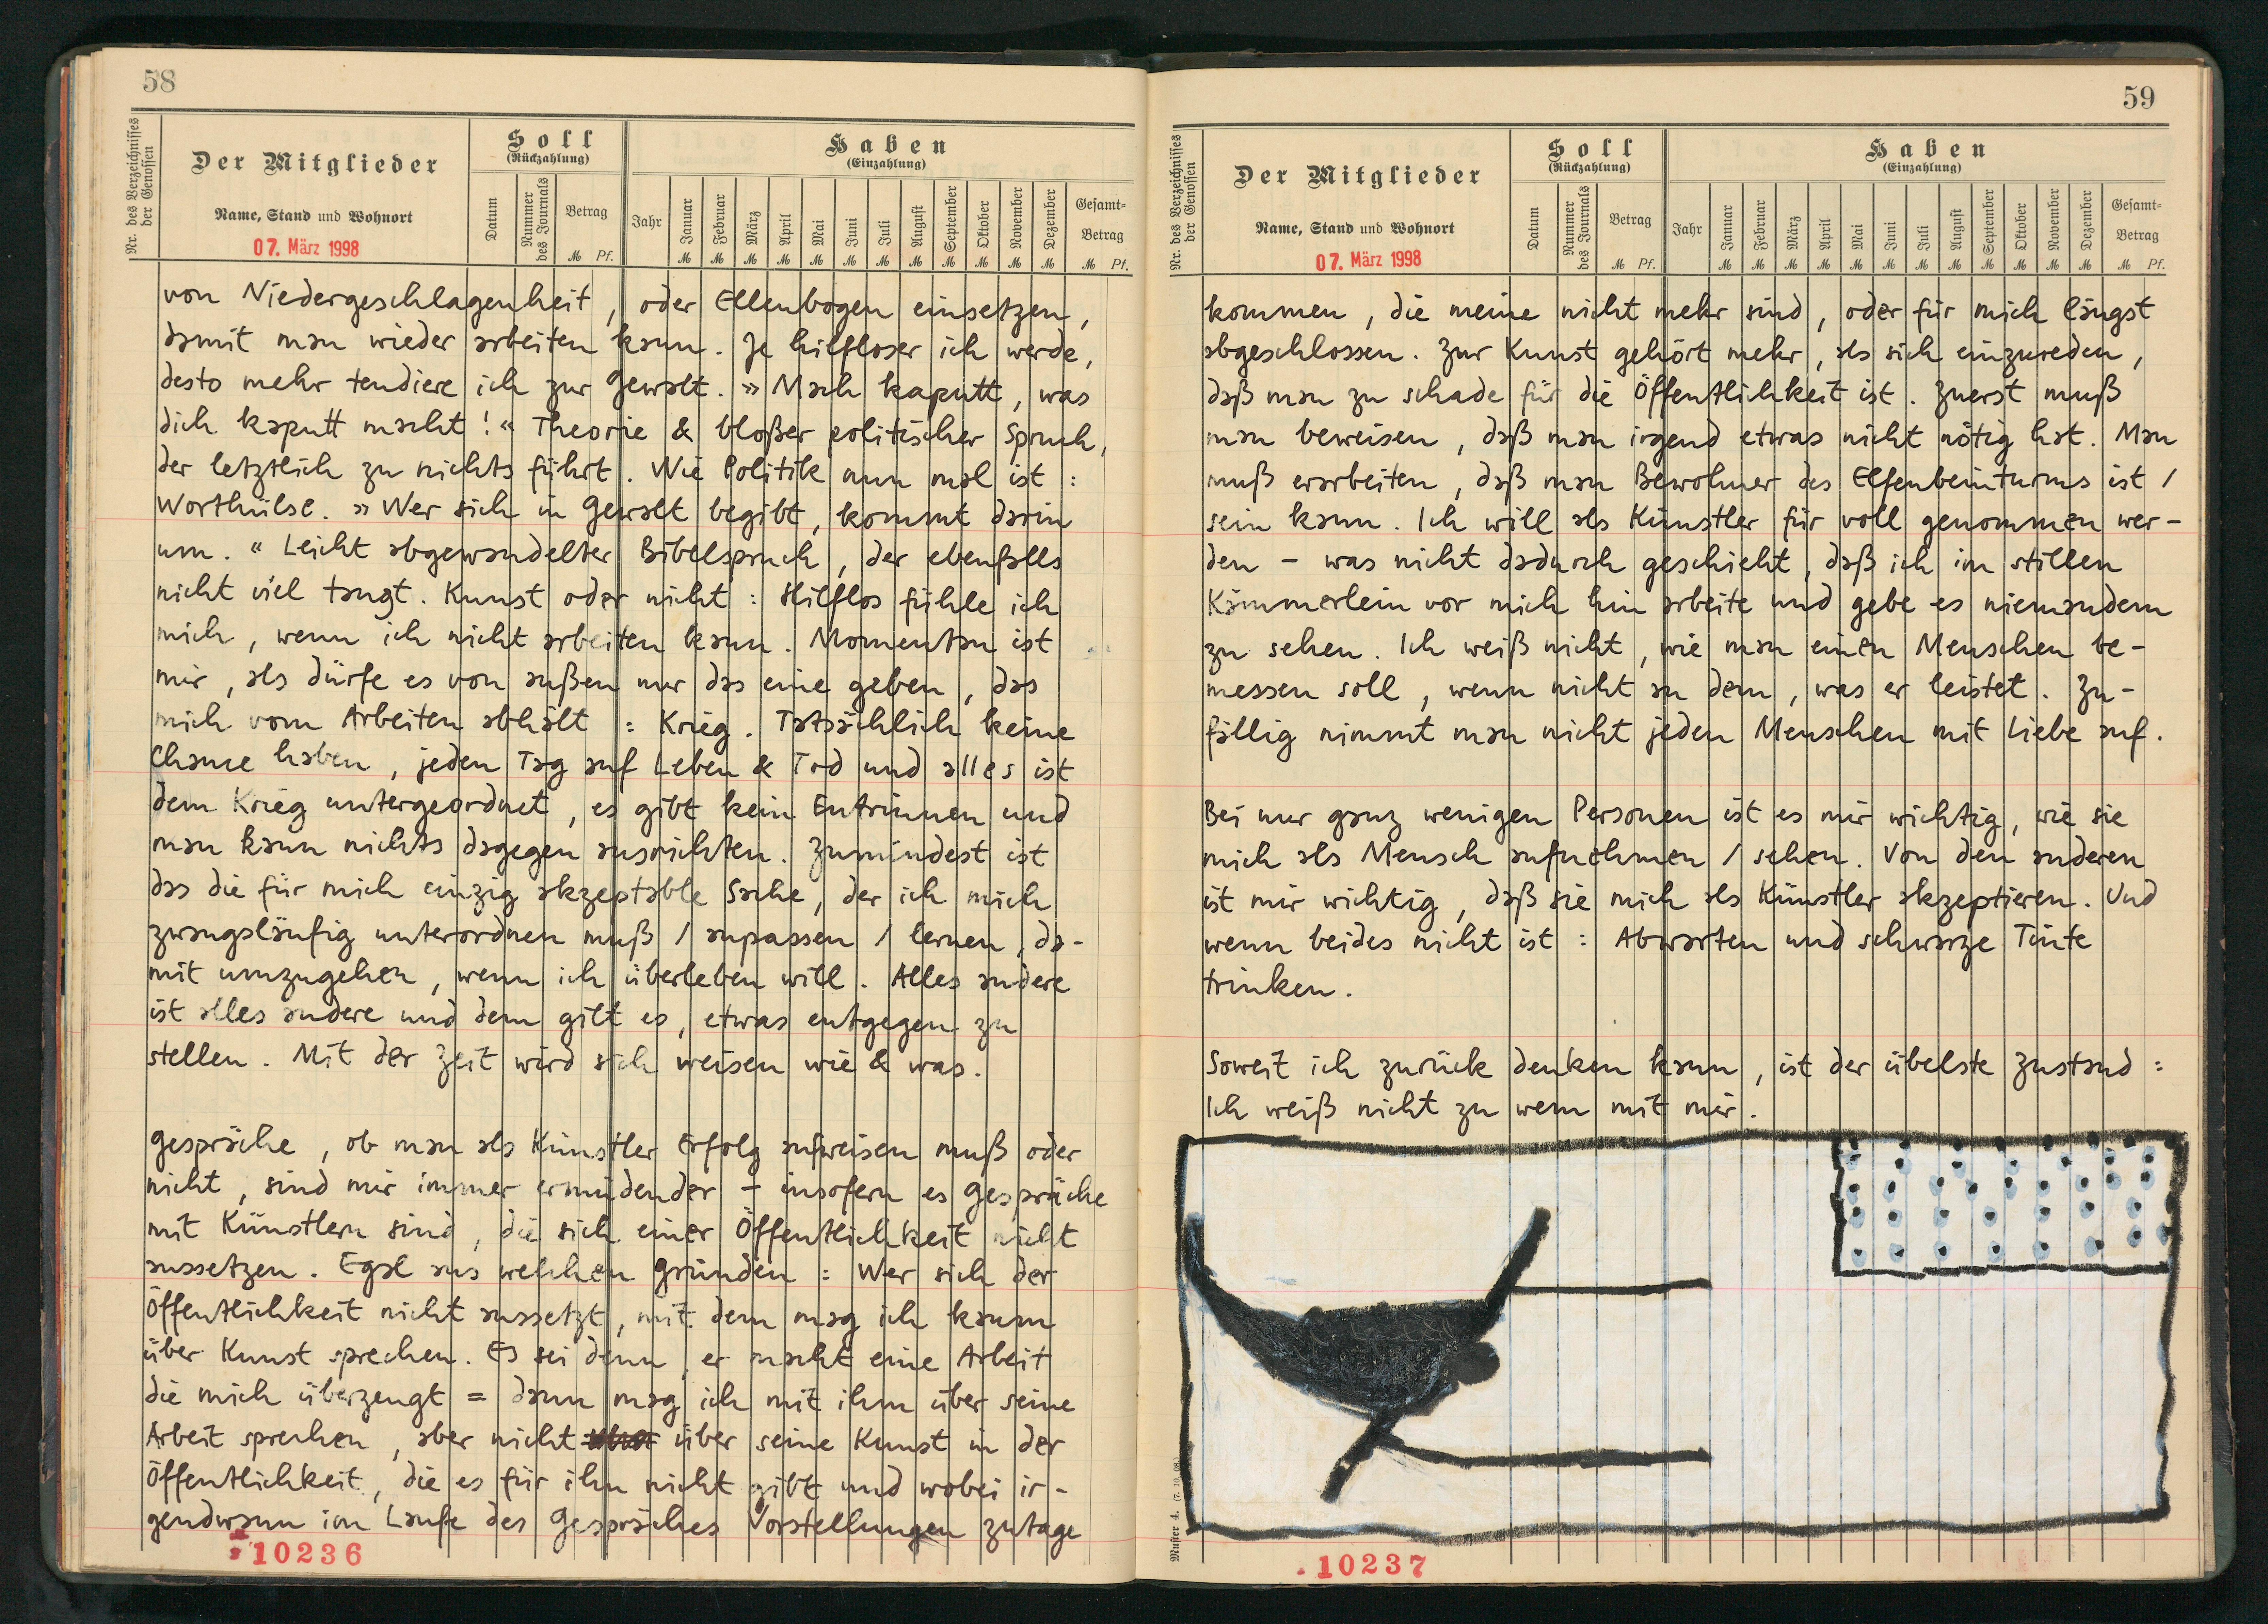 58
Nr. des Verzeichnisses der Genossen
Der Mitglieder
Name, Stand und Wohnort
07. März 1998
Soll
(Rückzahlung)
Datum
Nummer des Journals
Betrag
M Pf.
Haben
(Einzahlung)
Jahr Januar Februar März April Mai Juni Juli August September Oktober November Dezember Gesamt-Betrag
M M M M M M M M M M M M M Pf.
von Niedergeschlagenheit, oder Ellenbogen einsetzen,
damit man wieder arbeiten kann. Je hilfloser ich werde,
desto mehr tendiere ich zur Gewalt. »Mach kaputt, was
dich kaputt macht!« Theorie & bloßer politischer Spruch,
der letztlich zu nichts führt. Wie Politik nun mal ist:
Worthülse. »Wer sich in Gewalt begibt, kommt darin
um.« Leicht abgewandelter Bibelspruch, der ebenfalls
nicht viel taugt. Kunst oder nicht: Hilflos fühle ich
mich, wenn ich nicht arbeiten kann. Momentan ist
mir, als dürfe es von außen nur das eine geben, das
mich vom Arbeiten abhält: Krieg. Tatsächlich keine
Chance haben, jeden Tag auf Leben & Tod und alles ist
dem Krieg untergeordnet, es gibt kein Entrinnen und
man kann nichts dagegen ausrichten. Zumindest ist
das die für mich einzig akzeptable Sache, der ich mich
zwangsläufig unterordnen muß / anpassen / lernen, da-
mit umzugehen, wenn ich überleben will. Alles andere
ist alles andere und dem gilt es, etwas entgegen zu
stellen. Mit der Zeit wird sich weisen wie & was.
Gespräche, ob man als Künstler Erfolg aufweisen muß oder
nicht, sind mir immer ermüdender – insofern es Gespräche
mit Künstlern sind, die sich einer Öffentlichkeit nicht
aussetzen. Egal aus welchen Gründen: Wer sich der
Öffentlichkeit nicht aussetzt, mit dem mag ich kaum
über Kunst sprechen. Es sei denn, er macht eine Arbeit
die mich überzeugt = dann mag ich mit ihm über seine
Arbeit sprechen, aber nicht über seine Kunst in der
Öffentlichkeit, die es für ihn nicht gibt und wobei ir-
gendwann im Laufe des Gespräches Vorstellungen zutage
10236
59
Nr. des Verzeichnisses der Genossen
Der Mitglieder
Name, Stand und Wohnort
07. März 1998
Soll
(Rückzahlung)
Datum
Nummer des Journals
Betrag
M Pf.
Haben
(Einzahlung)
Jahr Januar Februar März April Mai Juni Juli August September Oktober November Dezember Gesamt-Betrag
M M M M M M M M M M M M M Pf.
kommen, die meine nicht mehr sind, oder für mich längst
abgeschlossen. Zur Kunst gehört mehr, als sich einzureden,
daß man zu schade für die Öffentlichkeit ist. Zuerst muß
man beweisen, daß man irgend etwas nicht nötig hat. Man
muß erarbeiten, daß man Bewohner des Elfenbeinturms ist /
sein kann. Ich will als Künstler für voll genommen wer-
den – was nicht dadurch geschieht, daß ich im stillen
Kämmerlein vor mich hin arbeite und gebe es niemandem
zu sehen. Ich weiß nicht, wie man einen Menschen be-
messen soll, wenn nicht an dem, was er leistet. Zu-
fällig nimmt man nicht jeden Menschen mit Liebe auf.
Bei nur ganz wenigen Personen ist es mir wichtig, wie sie
mich als Mensch aufnehmen / sehen. Von den anderen
ist mir wichtig, daß sie mich als Künstler akzeptieren. Und
wenn beides nicht ist: Abwarten und schwarze Tinte
trinken.
Soweit ich zurück denken kann, ist der übelste Zustand:
Ich weiß nicht zu wem mit mir.
Muster 4. (7. 10. 08.)
10237